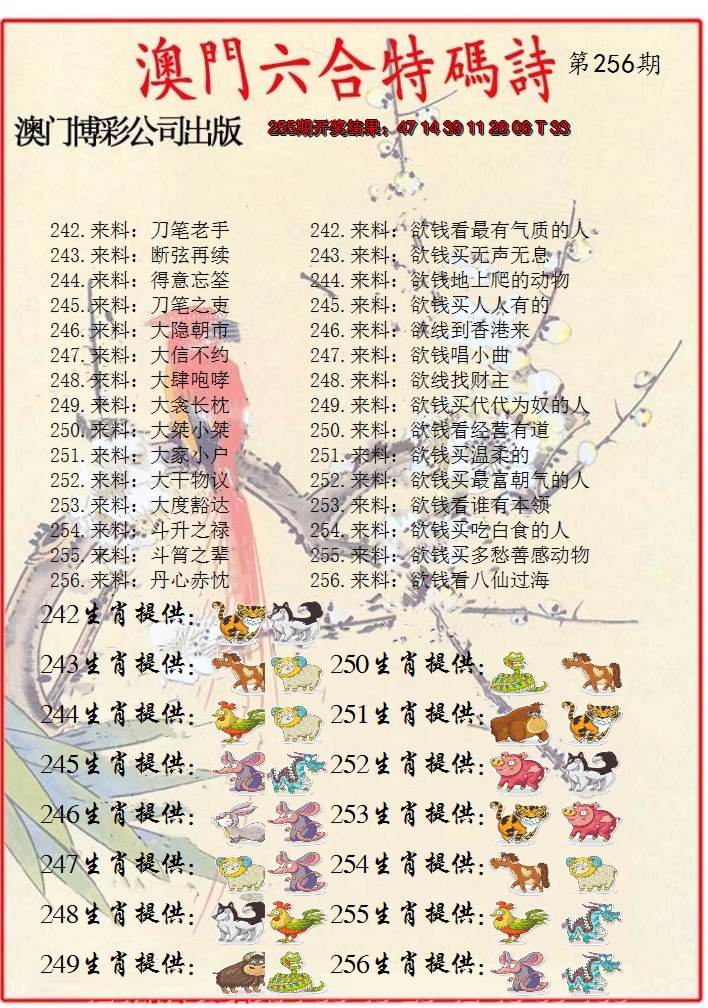 澳門六合特碼詩 第256期
澳门博彩公司出版 255期开奖结果：47 14 39 11 28 06 T 33
242.来料：刀笔老手 242.来料：欲钱看最有气质的人
243.来料：断弦再续 243.来料：欲钱买无声无息
244.来料：得意忘筌 244.来料：欲钱地上爬的动物
245.来料：刀笔之吏 245.来料：欲钱买人人有的
246.来料：大隐朝市 246.来料：欲线到香港来
247.来料：大信不约 247.来料：欲钱唱小曲
248.来料：大肆咆哮 248.来料：欲线找财主
249.来料：大衾长枕 249.来料：欲钱买代代为奴的人
250.来料：大桀小桀 250.来料：欲钱看经营有道
251.来料：大家小户 251.来料：欲钱买温柔的
252.来料：大干物议 252.来料：欲钱买最富朝气的人
253.来料：大度豁达 253.来料：欲钱看谁有本领
254.来料：斗升之禄 254.来料：欲钱买吃白食的人
255.来料：斗筲之辈 255.来料：欲钱买多愁善感动物
256.来料：丹心赤忱 256.来料：欲钱看八仙过海
242生肖提供：
243生肖提供： 250生肖提供：
244生肖提供： 251生肖提供：
245生肖提供： 252生肖提供：
246生肖提供： 253生肖提供：
247生肖提供： 254生肖提供：
248生肖提供： 255生肖提供：
249生肖提供： 256生肖提供：